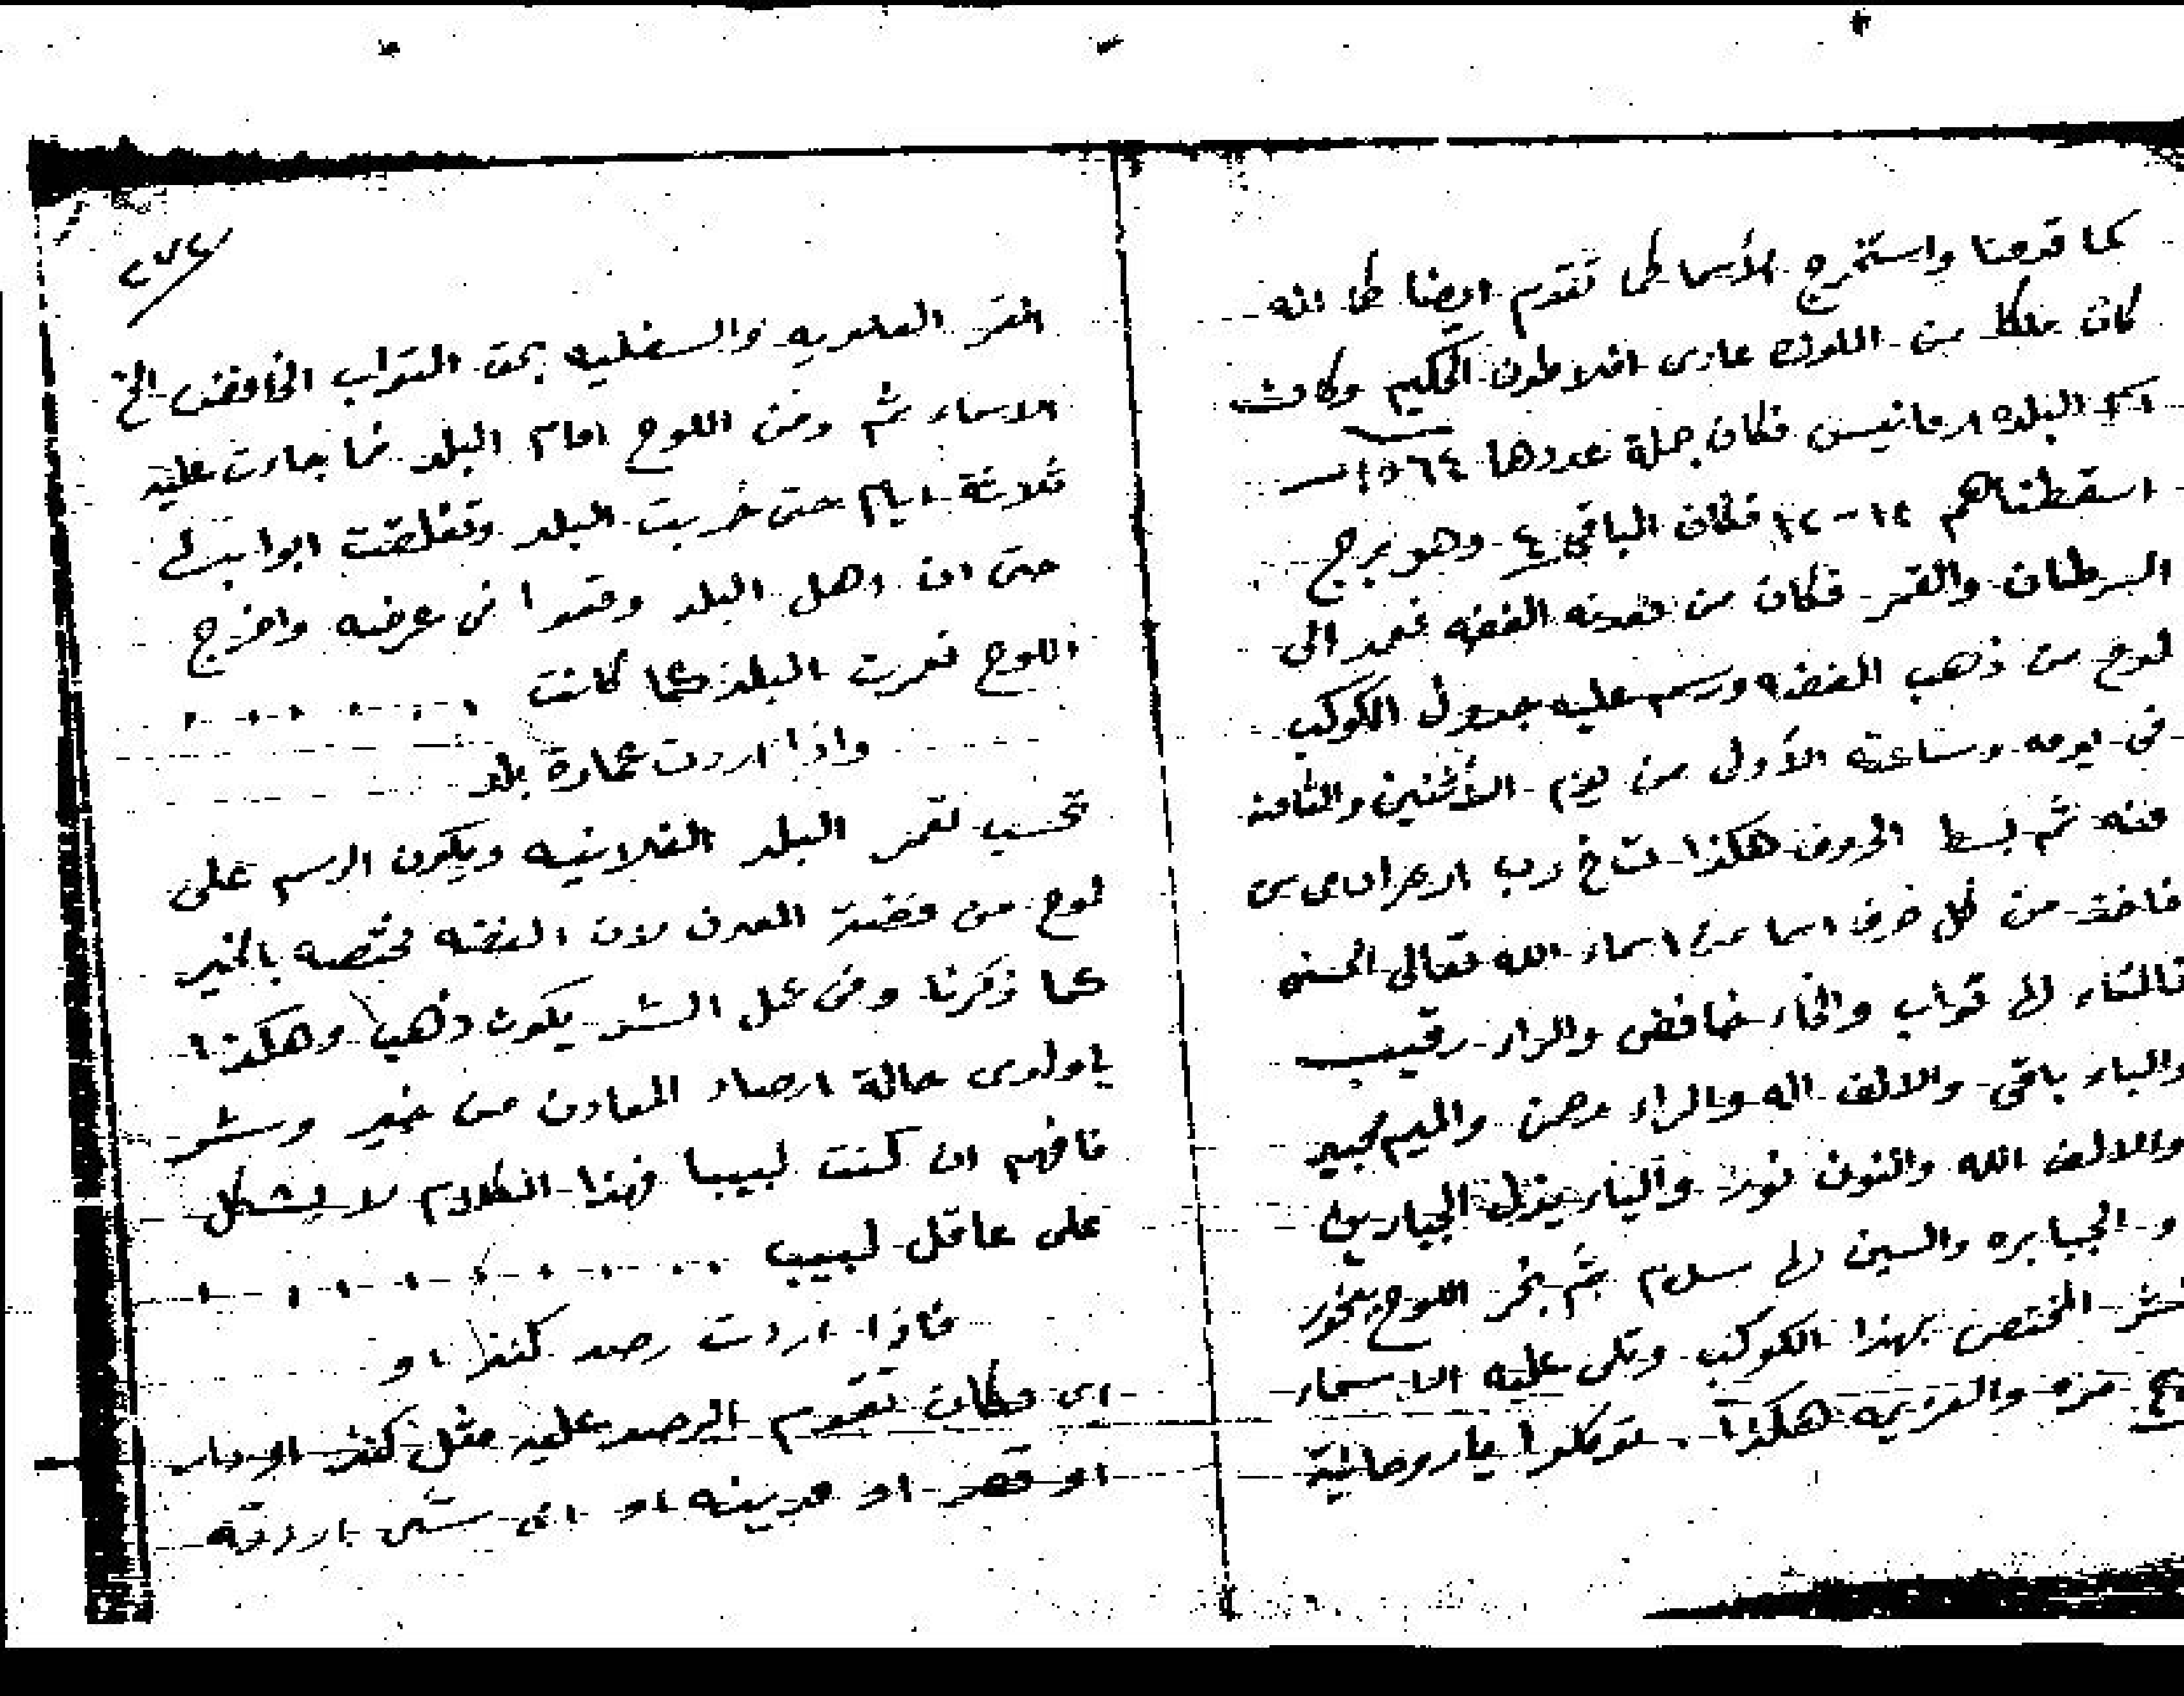 كما قدمنا واستخرج الأسما كما تقدم ايضا كما انه
كان ملكا من الملوك عادى افلاطون الحكيم وكانت
اسم البلده ارمانيس فكان جملة عددها ١٥٦٤
اسقطناهم ١٢-١٢ فكان الباقي ٤ وهو برج
السرطان والقمر فكان من معدنه الفضه فعمد الى
لوح من ذهب الفضه ورسم عليه جدول الكوكب
فى يومه وساعته الأول من يوم الأثنين والثامنه
منه ثم بسط الحروف هكذا ت خ ر ب ا ر م ا ن ى س
فاخذ من كل حرف اسما من اسماء الله تعالى الحسنى
فالتاء له تواب والخاء خافض والراء رقيب
والباء باقى والالف اله والراء رحمن والميم مجيد
والالف الله والنون نور والياء يذل الجبارين
و الجبابره والسين له سلام ثم بخر اللوح ببخور
المختص بهذا الكوكب وتلى عليه الاسماء
مره والعزيمه هكذا . توكلوا ياروحانية
٢٧٤
القمر العلويه والسفليه بحق التواب الخافض الخ
الاسماء ثم دفن اللوح امام البلد فما جازت عليه
ثلاثة ايام حتى خربت البلد وتغلقت ابوابها
حتى ان اهل البلد وقعوا فى عرضه واخرج
اللوح فعمرت البلد كما كانت
واذا اردت عمارة بلد
تحسب تعمر البلد الفلانيه ويكون الرسم على
لوح من فضة المعدن لان الفضه مختصه بالخير
كما ذكرنا وفى عمل الشر يكون ذهب وهكذا
ياولدى حالة ارصاد المعادن من خير وشر
فافهم ان كنت لبيبا فهذا الكلام لا يشكل
على عاقل لبيب
فاذا اردت رصد كنز او
اى مكان تقوم الرصد عليه مثل كنز او دار
او قصر او مدينه او اى شئ اردته